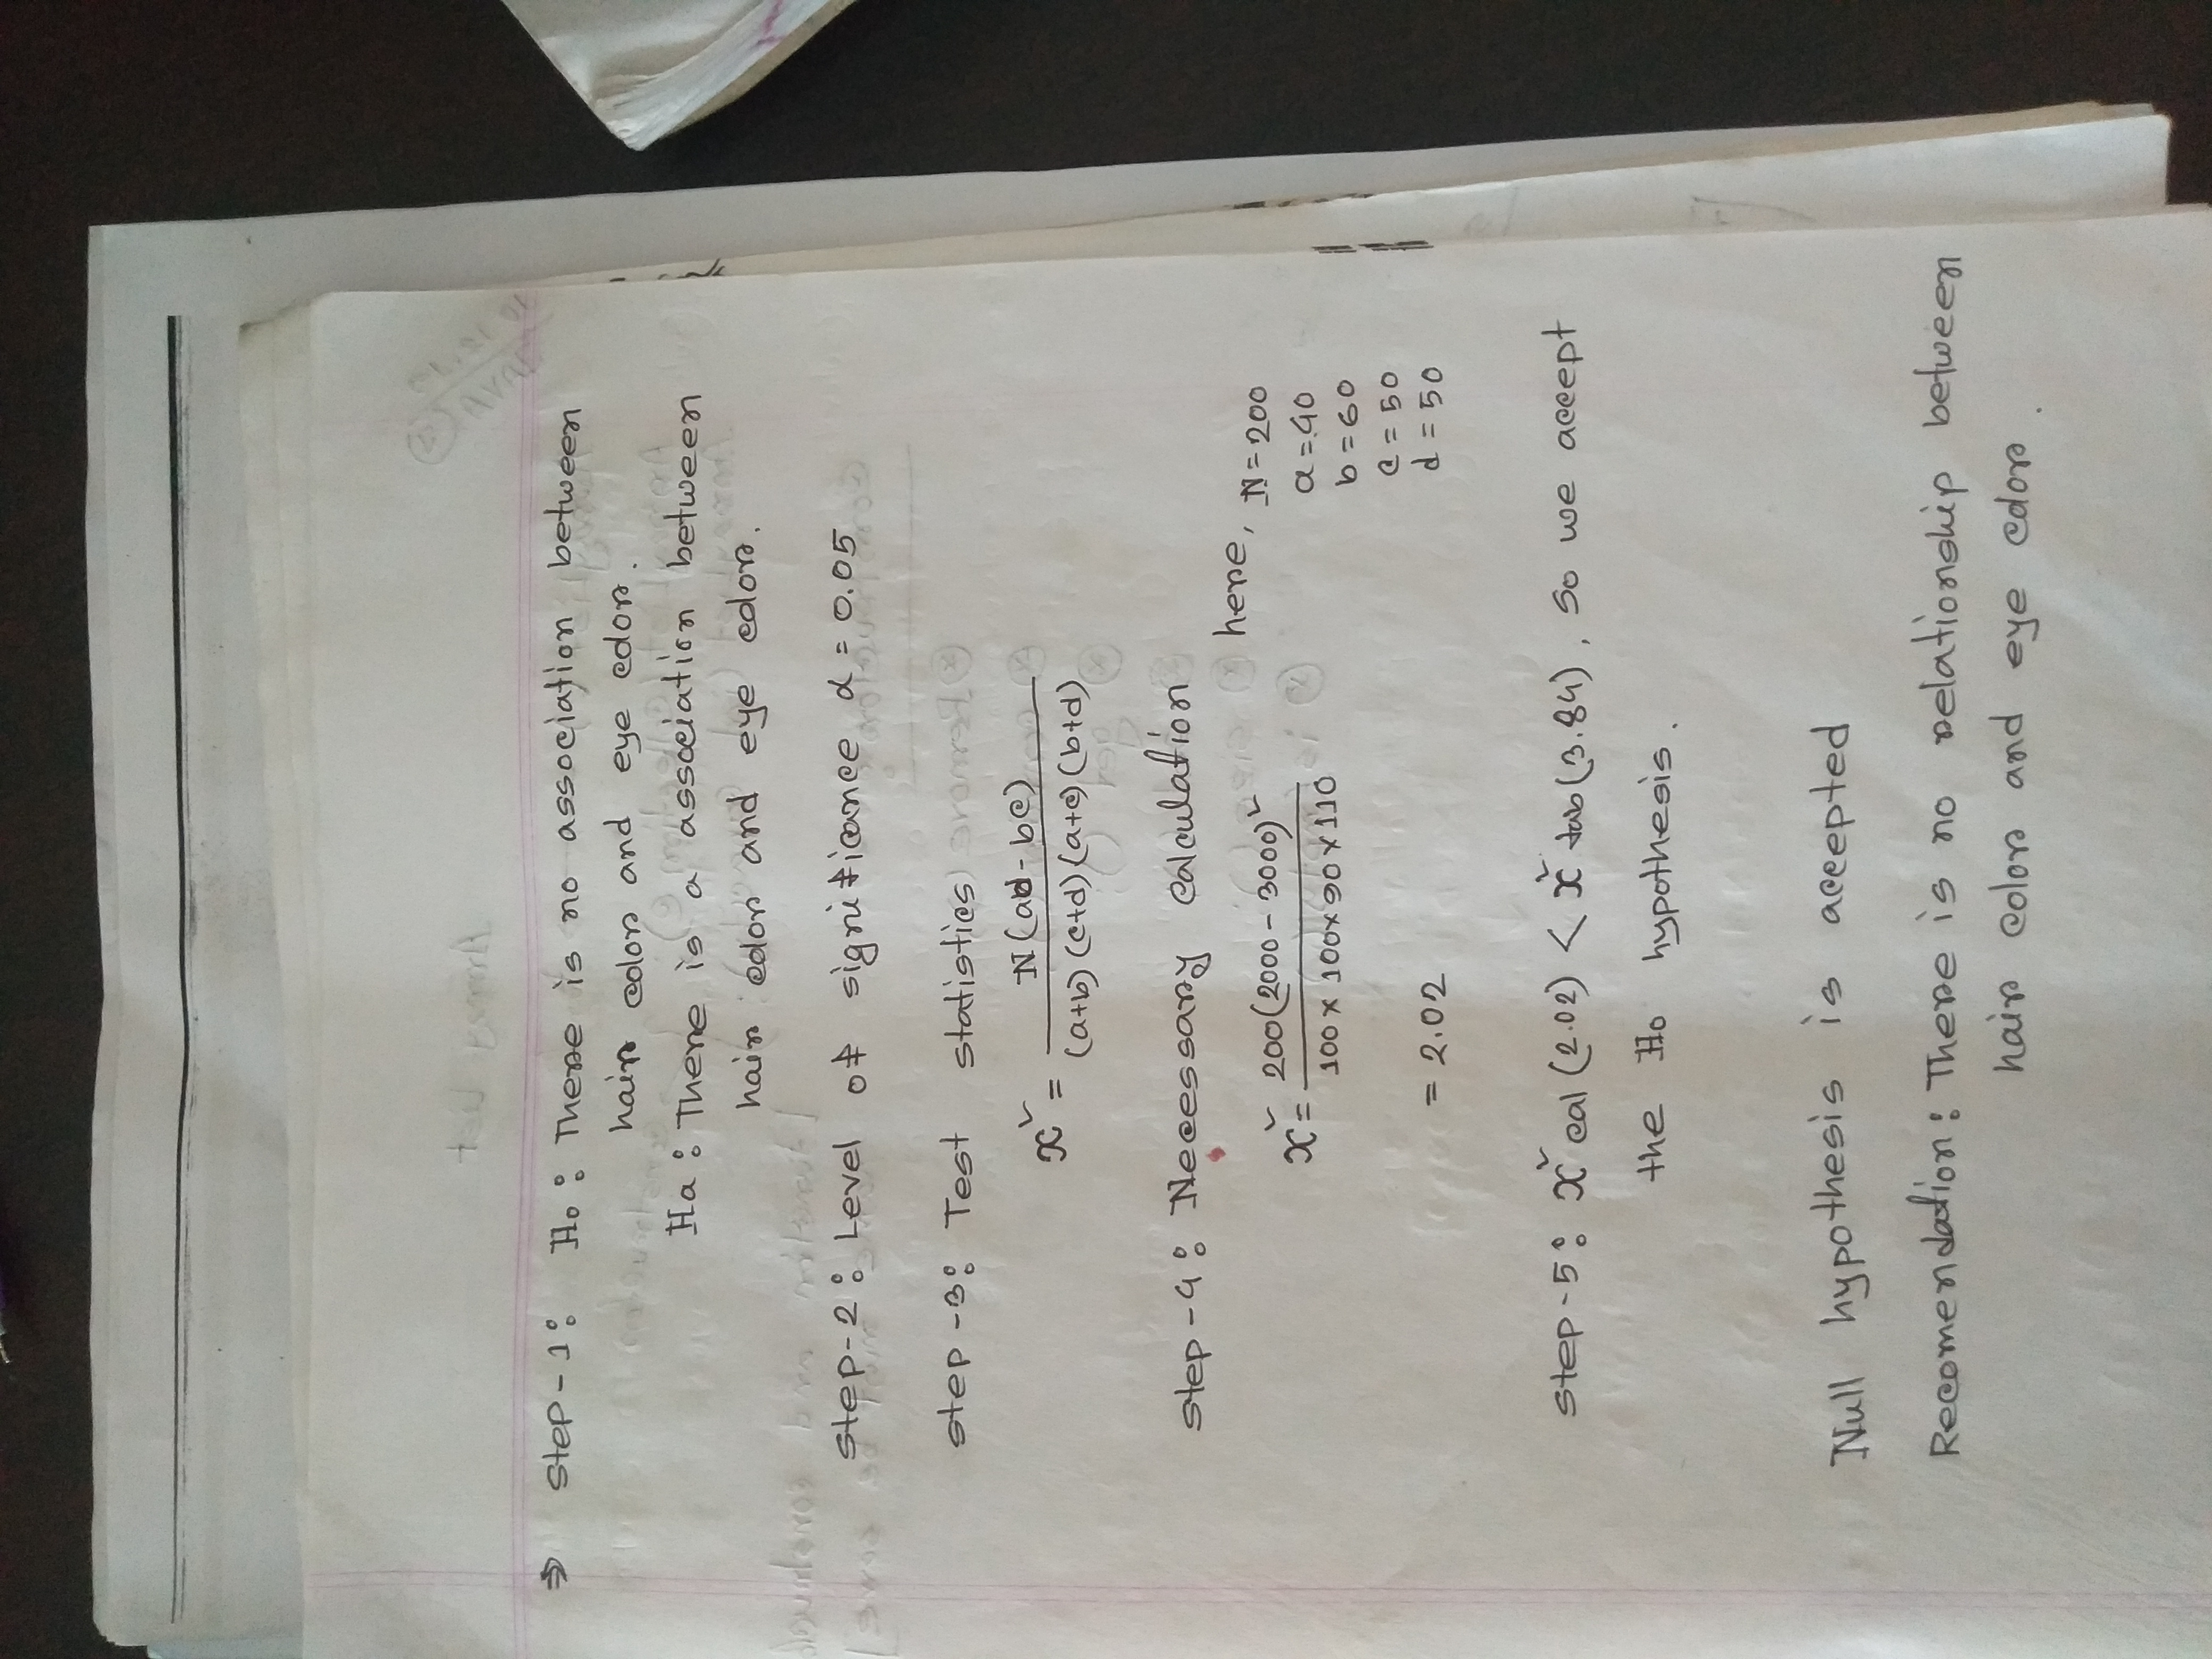 ⇒ Step-1: H₀: There is no association between
hair color and eye color.
Ha: There is a association between
hair color and eye color.
Step-2: Level of significance α = 0.05
Step-3: Test statistics
x² = N(ad - bc) / (a+b)(c+d)(a+c)(b+d)
Step-4: Necessary calculation
here, N = 200
x² = 200(2000 - 3000)² / 100 x 100 x 90 x 110
a = 40
b = 60
c = 50
= 2.02
d = 50
Step-5: x² cal (2.02) < x² tab (3.84), so we accept
the H₀ hypothesis.
Null hypothesis is accepted
Recomendation: There is no relationship between
hair color and eye color.